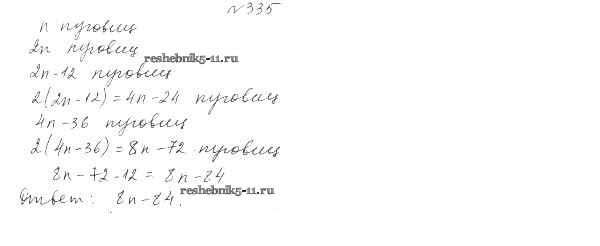 №335
n пуговиц
2n пуговиц
reshebnik5-11.ru
2n-12 пуговиц
2(2n-12)=4n-24 пуговиц
4n-36 пуговиц
2(4n-36)=8n-72 пуговиц
8n-72-12=8n-84
reshebnik5-11.ru
Ответ: 8n-84.